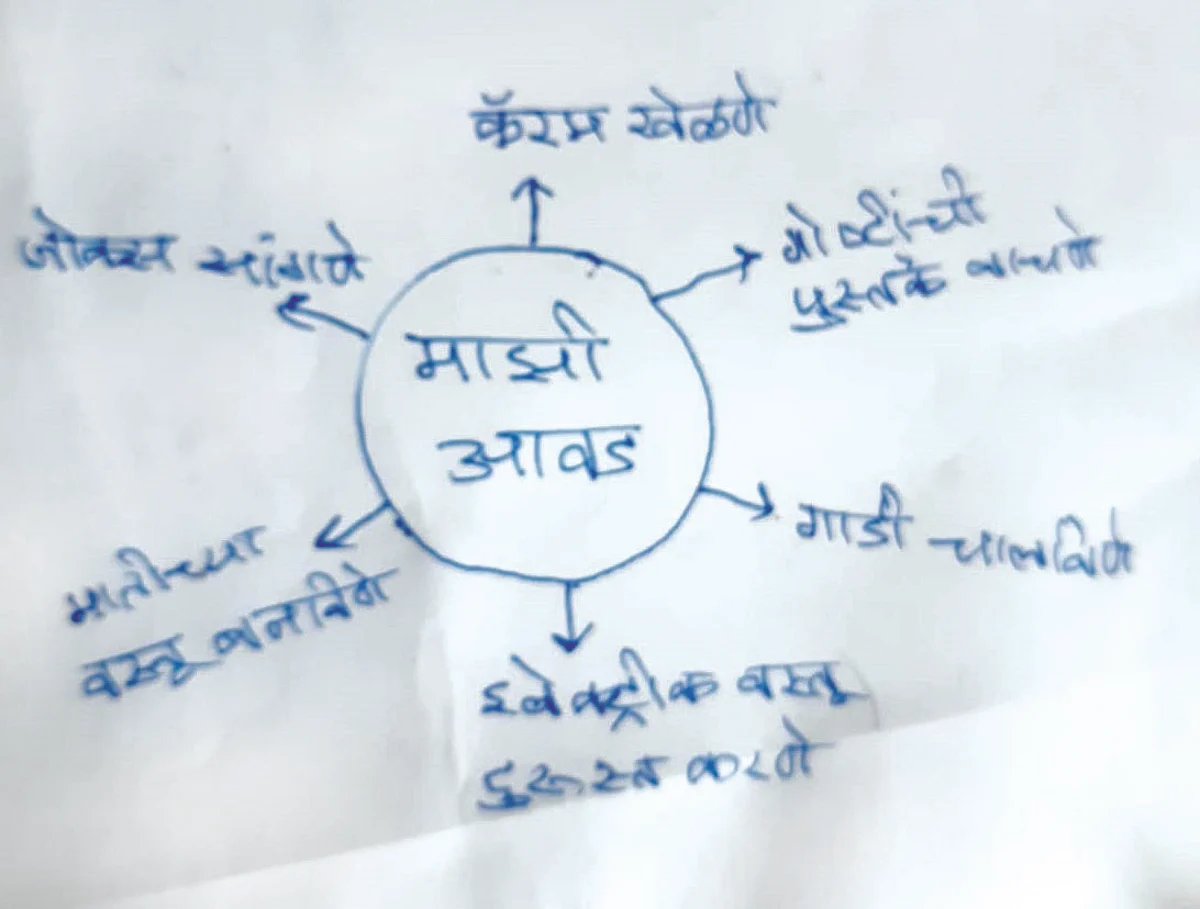 कॅरम खेळणे
गोष्टींची
पुस्तके वाचणे
जोक्स सांगणे
माझी
आवड
गाडी चालविणे
मातीच्या
वस्तू बनविणे
इलेक्ट्रीक वस्तू
दुरूस्त करणे